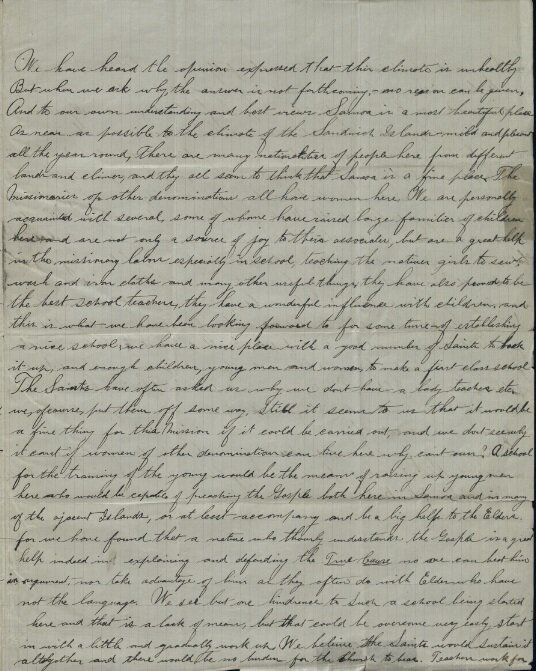 We have heard the opinion expressed that this climate is unhealthy
But when we ask why the answer is not forthcoming,- no reason can be given,
And to our own understanding and best views Samoa is a most beautiful place
As near as possible to the climate of the Sandwich Islands - mild and pleasant
all the year round, There are many nationalities of people here from different
lands and climes, and they all seem to think that Samoa is a fine place, The
Missionaries of other denominations all have women here. We are personally
acquainted with several, some of whome have raised large families of children
here and are not only a source of joy to their associates, but are a great help
in the missionary labor especially in school, teaching the native girls to sew,
wash and iron cloths and many other useful things, they have also proved to be
the best school teachers, they have a wonderful influence with children, and
this is what we have been looking foward to for some time, of establishing
a nice school, we have a nice place with a good number of Saints to back
it up, and enough children, young men and women, to make a first class school.
The Saints have often asked us why we dont have a lady teacher etc
we, ofcourse, put them off some way, Still it seems to us that it would be
a fine thing for this Mission if it could be carried out, and we dont see why
it cant if women of other denomination can live here why cant ours? A school
for the training of the young would be the means of raising up young men
here who would be capable of preaching the Gosple both here in Samoa and in many
of the ajacent Islands, or at least accompany and be a big help to the Elders.
for we have found that a native who thinly understands the Gosple is a great
help indeed in explaining and defending the True Cause no one can beat him
in argument, nor take advantage of him as they often do with Elders who have
not the language. We see but one hindrance to such a school being started
here and that is a lack of means, but that could be overcome very easy, start
in with a little and gradually work up, We believe the Saints would sustain it
altogether and there would be no burden for the Church to bear. Teachers work for